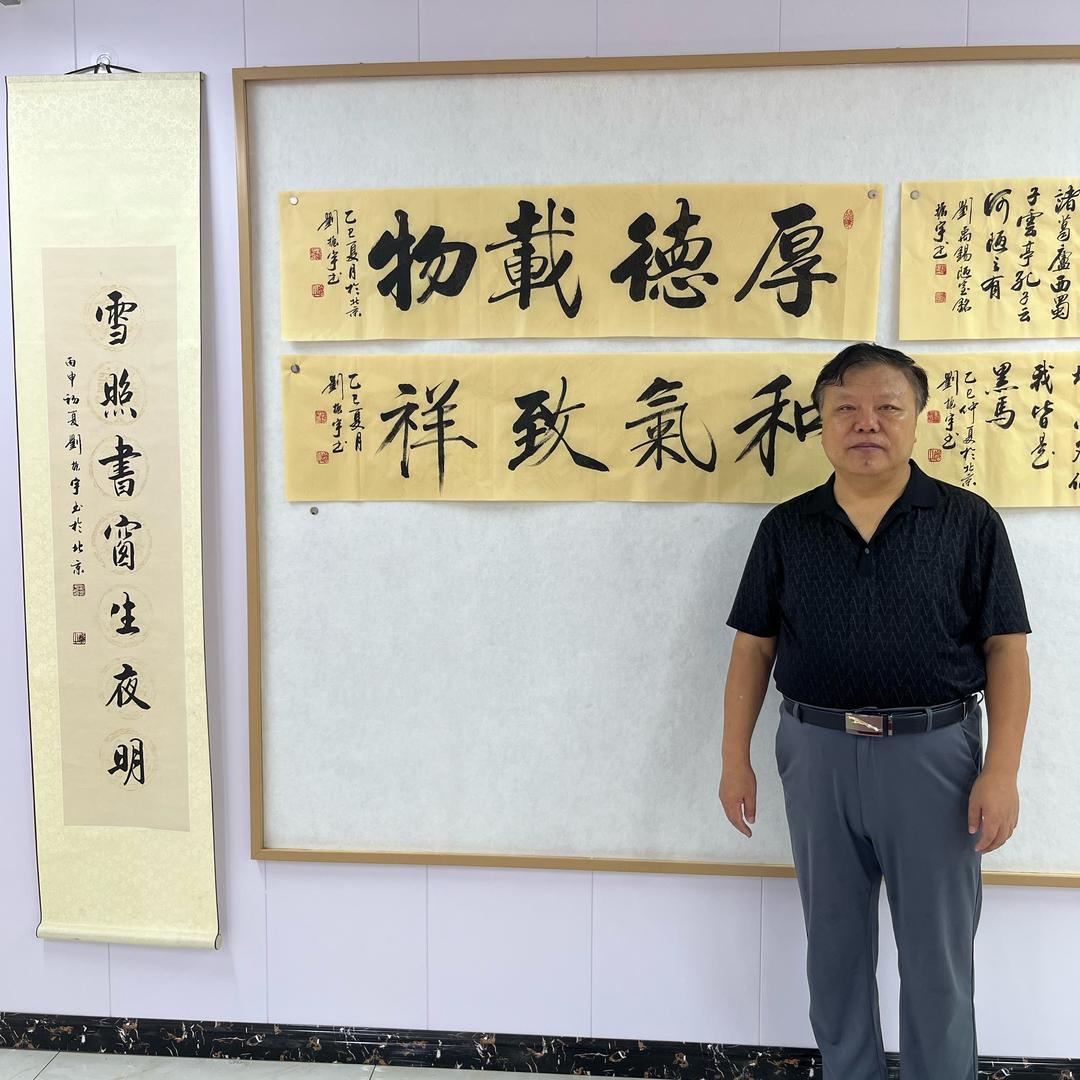 雪照書窗生夜明
丙申初夏劉振宇书於北京
厚德載物
乙巳夏月於北京
劉振宇书
和氣致祥
乙巳夏月
劉振宇书
諸葛廬西蜀
子雲亭孔子云
何陋之有
劉禹錫陋室銘
振宇书
我皆是
黑馬
乙巳仲夏於北京
劉振宇书